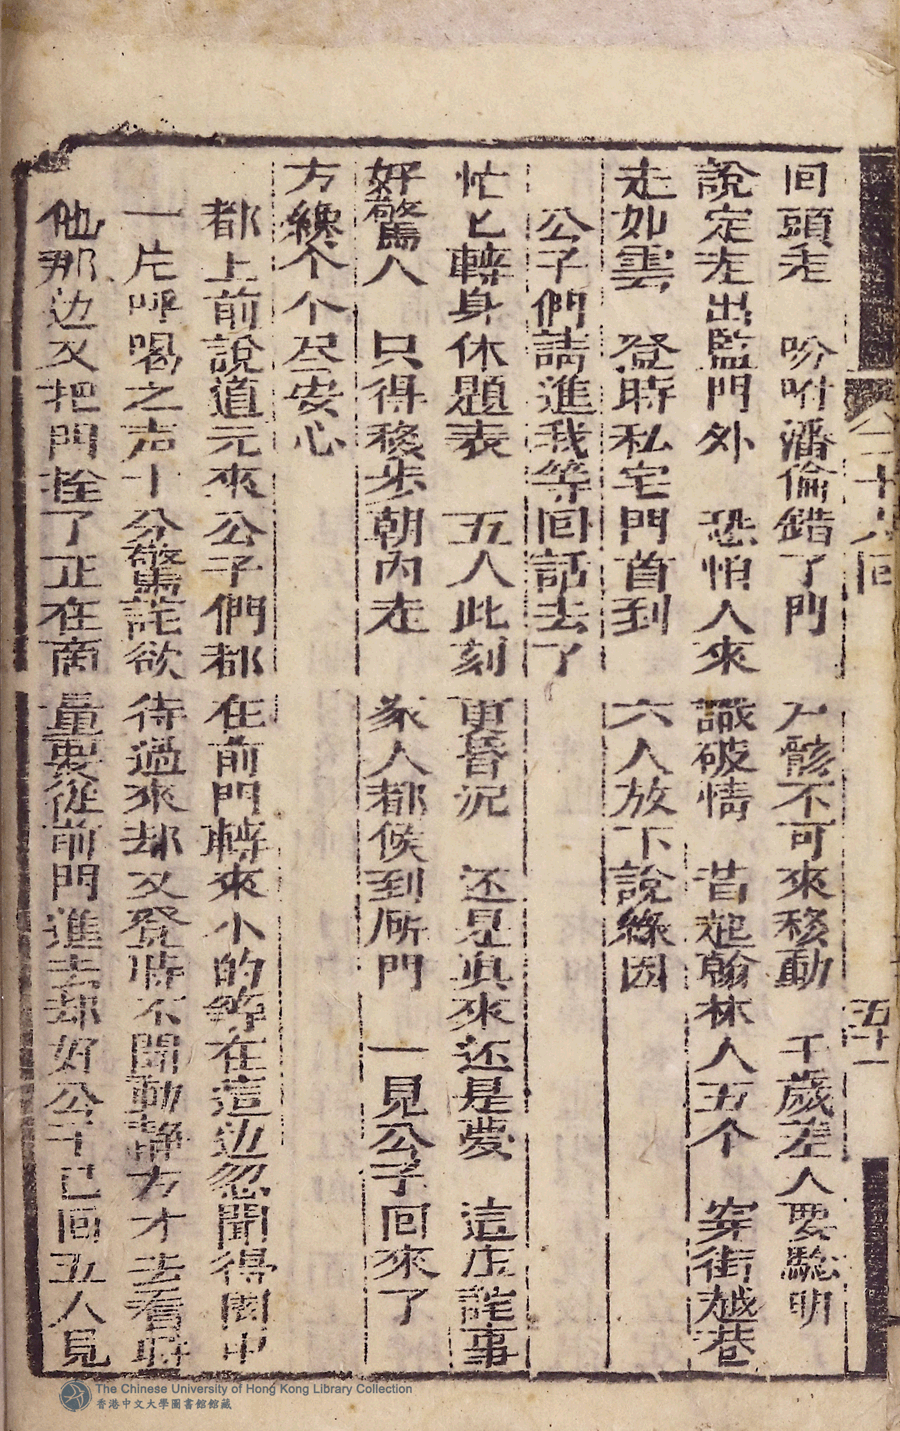 回頭走　吩咐潘倫錯了門　尸骸不可來移動　千歲差人要驗明
說定走出監門外　恐怕人來識破情　背起翰林人五个　穿街越巷
走如雲　登時私宅門首到　六人放下說緣因
公子們請進我等回話去了
忙匕轉身休題表　五人此刻更昏沉　还是真來还是夢　這庄詫事
好驚人　只得移步朝內走　家人都候到所門　一見公子回來了
方纔个个尽安心
都上前說道元來公子們都在前門轉來小的等在這边忽聞得園中
一片呼喝之声十分驚詫欲待過來却又登時不聞動靜方才去看時
他那边又把門拴了正在商量要從前門進去却好公子已回五人見
二十八回
五十一
The Chinese University of Hong Kong Library Collection
香港中文大學圖書館館藏